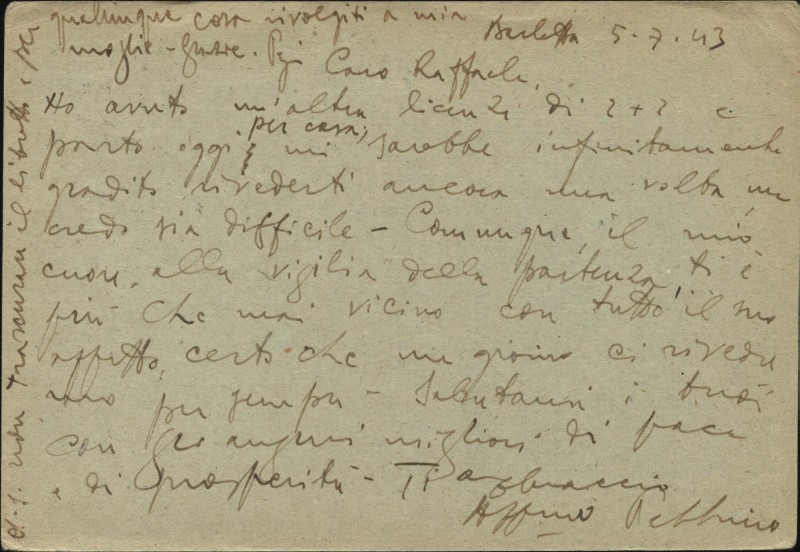 Barletta 5-7-43
Caro Raffaele,
Ho avuto un'altra licenza di 2+2 e
parto oggi per casa; mi sarebbe infinitamente
gradito rivederti ancora una volta, ma
credo sia difficile - Comunque, il mio
cuore, alla vigilia della partenza, ti è
più che mai vicino con tutto il suo
affetto, certo che un giorno ci rivedre
mo per sempre - Salutami i tuoi
con gli auguri migliori di pace
e di prosperità - Ti abbraccio
P.S. non trascurare il libretto e per
qualunque cosa rivolgiti a mia
moglie - Grazie.